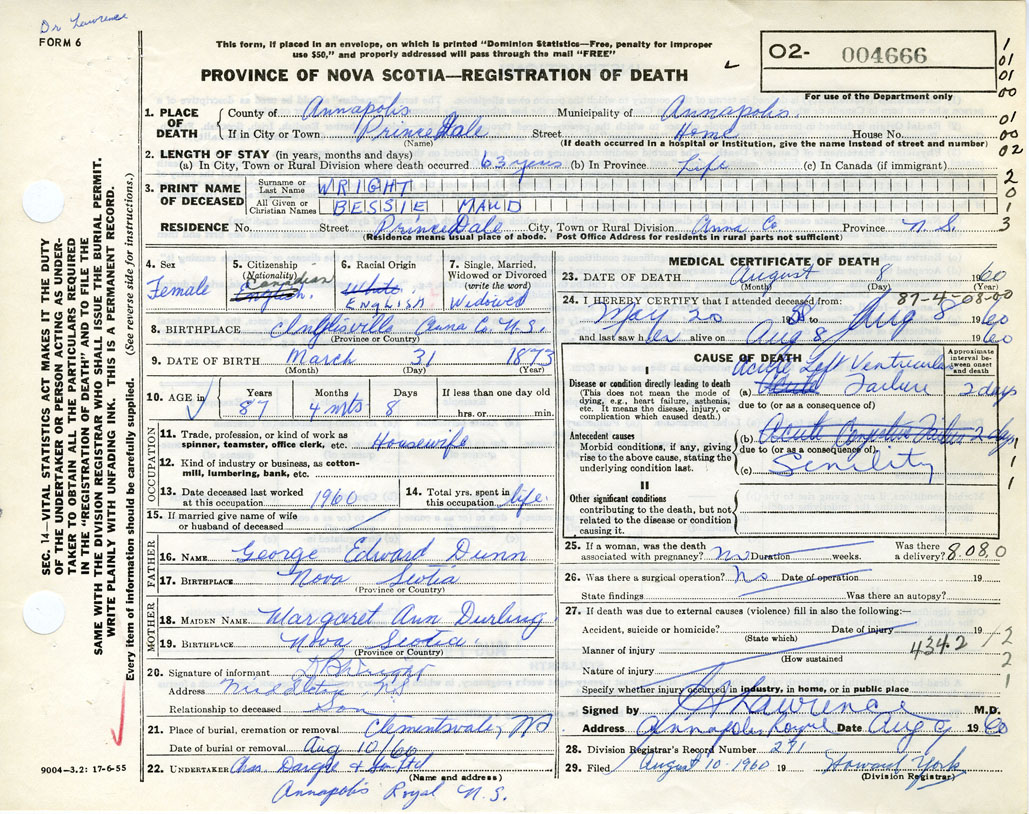 Dr Lawrence
FORM 6
This form, if placed in an envelope, on which is printed "Dominion Statistics—Free, penalty for improper
use $50," and properly addressed will pass through the mail "FREE"
PROVINCE OF NOVA SCOTIA—REGISTRATION OF DEATH
O2- 004666
For use of the Department only
1. PLACE OF DEATH { County of Annapolis Municipality of Annapolis
If in City or Town PrinceDale Street Home House No.
(Name) (If death occurred in a hospital or Institution, give the name instead of street and number)
2. LENGTH OF STAY (in years, months and days)
(a) In City, Town or Rural Division where death occurred 63 years (b) In Province Life (c) In Canada (if immigrant)
3. PRINT NAME OF DECEASED { Surname or Last Name WRIGHT
All Given or Christian Names BESSIE MAUD
RESIDENCE No. Street PrinceDale City, Town or Rural Division Anna Co Province N.S.
(Residence means usual place of abode. Post Office Address for residents in rural parts not sufficient)
4. Sex Female
5. Citizenship (Nationality) Canadian English
6. Racial Origin White ENGLISH
7. Single, Married, Widowed or Divorced (write the word) Widowed
8. BIRTHPLACE Anna Co. N.S.
(Province or Country)
9. DATE OF BIRTH March 31 1873
(Month) (Day) (Year)
10. AGE in Years 87 Months 4 mts Days 8 If less than one day old hrs. or min.
OCCUPATION
11. Trade, profession, or kind of work as spinner, teamster, office clerk, etc. Housewife
12. Kind of industry or business, as cotton-mill, lumbering, bank, etc.
13. Date deceased last worked at this occupation 1960
14. Total yrs. spent in this occupation life.
15. If married give name of wife or husband of deceased
FATHER
16. NAME George Edward Dunn
17. BIRTHPLACE Nova Scotia
(Province or Country)
MOTHER
18. MAIDEN NAME Margaret Ann Durling
19. BIRTHPLACE Nova Scotia
(Province or Country)
20. Signature of informant Wright
Address N.S
Relationship to deceased Son
21. Place of burial, cremation or removal Clementsvale, NS
Date of burial or removal Aug 10/60
22. UNDERTAKER
(Name and address)
Annapolis Royal N.S.
MEDICAL CERTIFICATE OF DEATH
23. DATE OF DEATH August 8 1960
(Month) (Day) (Year)
87-4-08-00
24. I HEREBY CERTIFY that I attended deceased from:
May 20 19 to Aug 8 1960
and last saw her alive on Aug 8 1960
CAUSE OF DEATH
Approximate interval between onset and death
I
Disease or condition directly leading to death
(This does not mean the mode of dying, e.g., heart failure, asthenia, etc. It means the disease, injury, or complication which caused death.)
(a) Acute Left Ventricular
Acute Failure 2 days
due to (or as a consequence of)
Antecedent causes
Morbid conditions, if any, giving rise to the above cause, stating the underlying condition last.
(b) Acute Congestive Failure 2 days
due to (or as a consequence of)
(c) Senility
II
Other significant conditions
contributing to the death, but not related to the disease or condition causing it.
25. If a woman, was the death associated with pregnancy? No Duration weeks. Was there a delivery?
8080
26. Was there a surgical operation? No Date of operation 19
State findings Was there an autopsy?
27. If death was due to external causes (violence) fill in also the following:—
Accident, suicide or homicide? Date of injury 19
(State which)
Manner of injury 434.2
(How sustained
Nature of injury
Specify whether injury occurred in industry, in home, or in public place
Signed by Lawrence M.D.
Address Annapolis Royal Date Aug 9 1960
28. Division Registrar's Record Number 291
29. Filed August 10 - 1960 19 Howard York
(Division Registrar)
SEC. 14—VITAL STATISTICS ACT MAKES IT THE DUTY
OF THE UNDERTAKER OR PERSON ACTING AS UNDER-
TAKER TO OBTAIN ALL THE PARTICULARS REQUIRED
IN THE "REGISTRATION OF DEATH" AND FILE THE
SAME WITH THE DIVISION REGISTRAR WHO SHALL ISSUE THE BURIAL PERMIT.
WRITE PLAINLY WITH UNFADING INK. THIS IS A PERMANENT RECORD.
Every item of information should be carefully supplied. (See reverse side for instructions.)
9004-3.2: 17-6-55